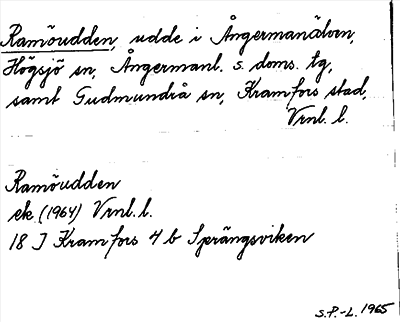 Ramöudden, udde i Ångermanälven,
Högsjö sn, Ångermanl. s. doms. tg,
samt Gudmundrå sn, Kramfors stad,
Vrnl. l.
Ramöudden
ek (1964) Vrnl. l.
18 J Kramfors 4 b Sprängsviken
S.P.-L. 1965